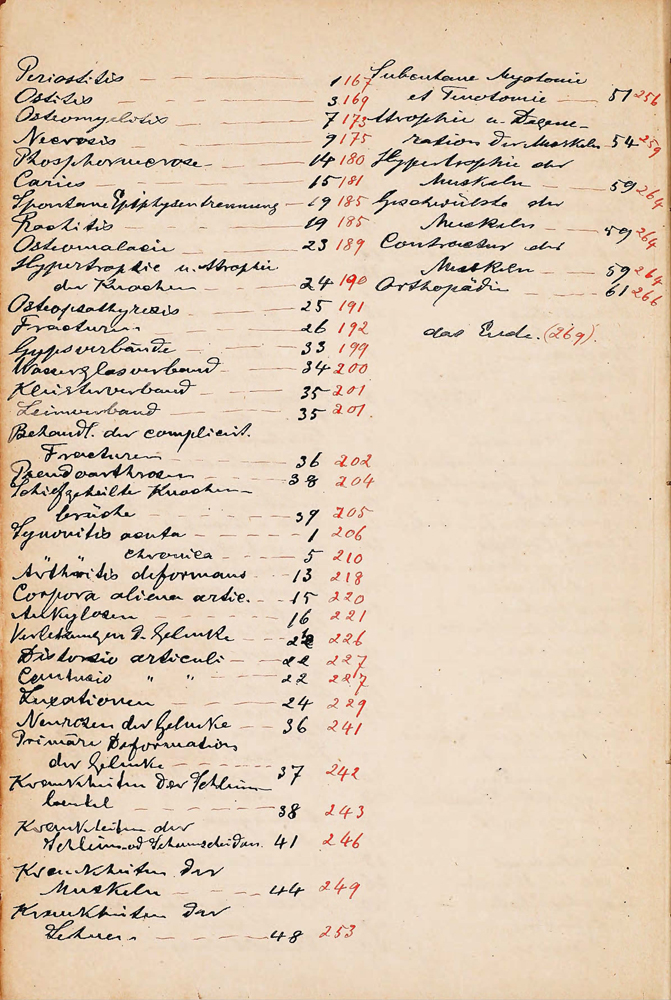 Periostitis — — — 1 167
Ostitis — — — 3 169
Osteomyelitis — — 7 173
Necrosis — — — 9 175
Phosphornecrose — — 14 180
Caries — — — 15 181
Spontane Epiphysentrennung — 19 185
Rachitis — — — 19 185
Osteomalacie — — 23 189
Hypertrophie u. Atrophie
der Knochen — — 24 190
Osteopsathyrosis — — 25 191
Fracturen — — — 26 192
Gypsverbände — — 33 199
Wasserglasverband — — 34 200
Kleisterverband — — 35 201
Leimverband — — 35 201.
Behandl. der complicirt.
Fracturen — — 36 202
Pseudoarthrosen — — 38 204
Schiefgeheilte Knochen-
brüche — — 39 205
Synovitis acuta — — 1 206
" chronica — — 5 210
Arthritis deformans — 13 218
Corpora aliena artic. — 15 220
Ankylosen — — 16 221
Verletzungen d. Gelenke — 226
Distorsio articuli — 22 227
Contusio " " — 22 227
Luxationen — — 24 229
Neurosen der Gelenke — 36 241
Primäre Deformation
der Gelenke — — 37 242
Krankheiten der Schleim-
beutel — — 38 243
Krankheiten der
Schleim- od Sehnenscheiden. 41 246
Krankheiten der
Muskeln — — 44 249
Krankheiten der
Sehnen — — 48 253
Subcutane Myotomie
et Tenotomie — 51 256
Atrophie u. Degene-
ration der Muskeln 54 259
Hypertrophie der
Muskeln — 59 264
Geschwülste der
Muskeln — 59 264
Contractur der
Muskeln — 59 264
Orthopädie — 61 266
das Ende. (269).